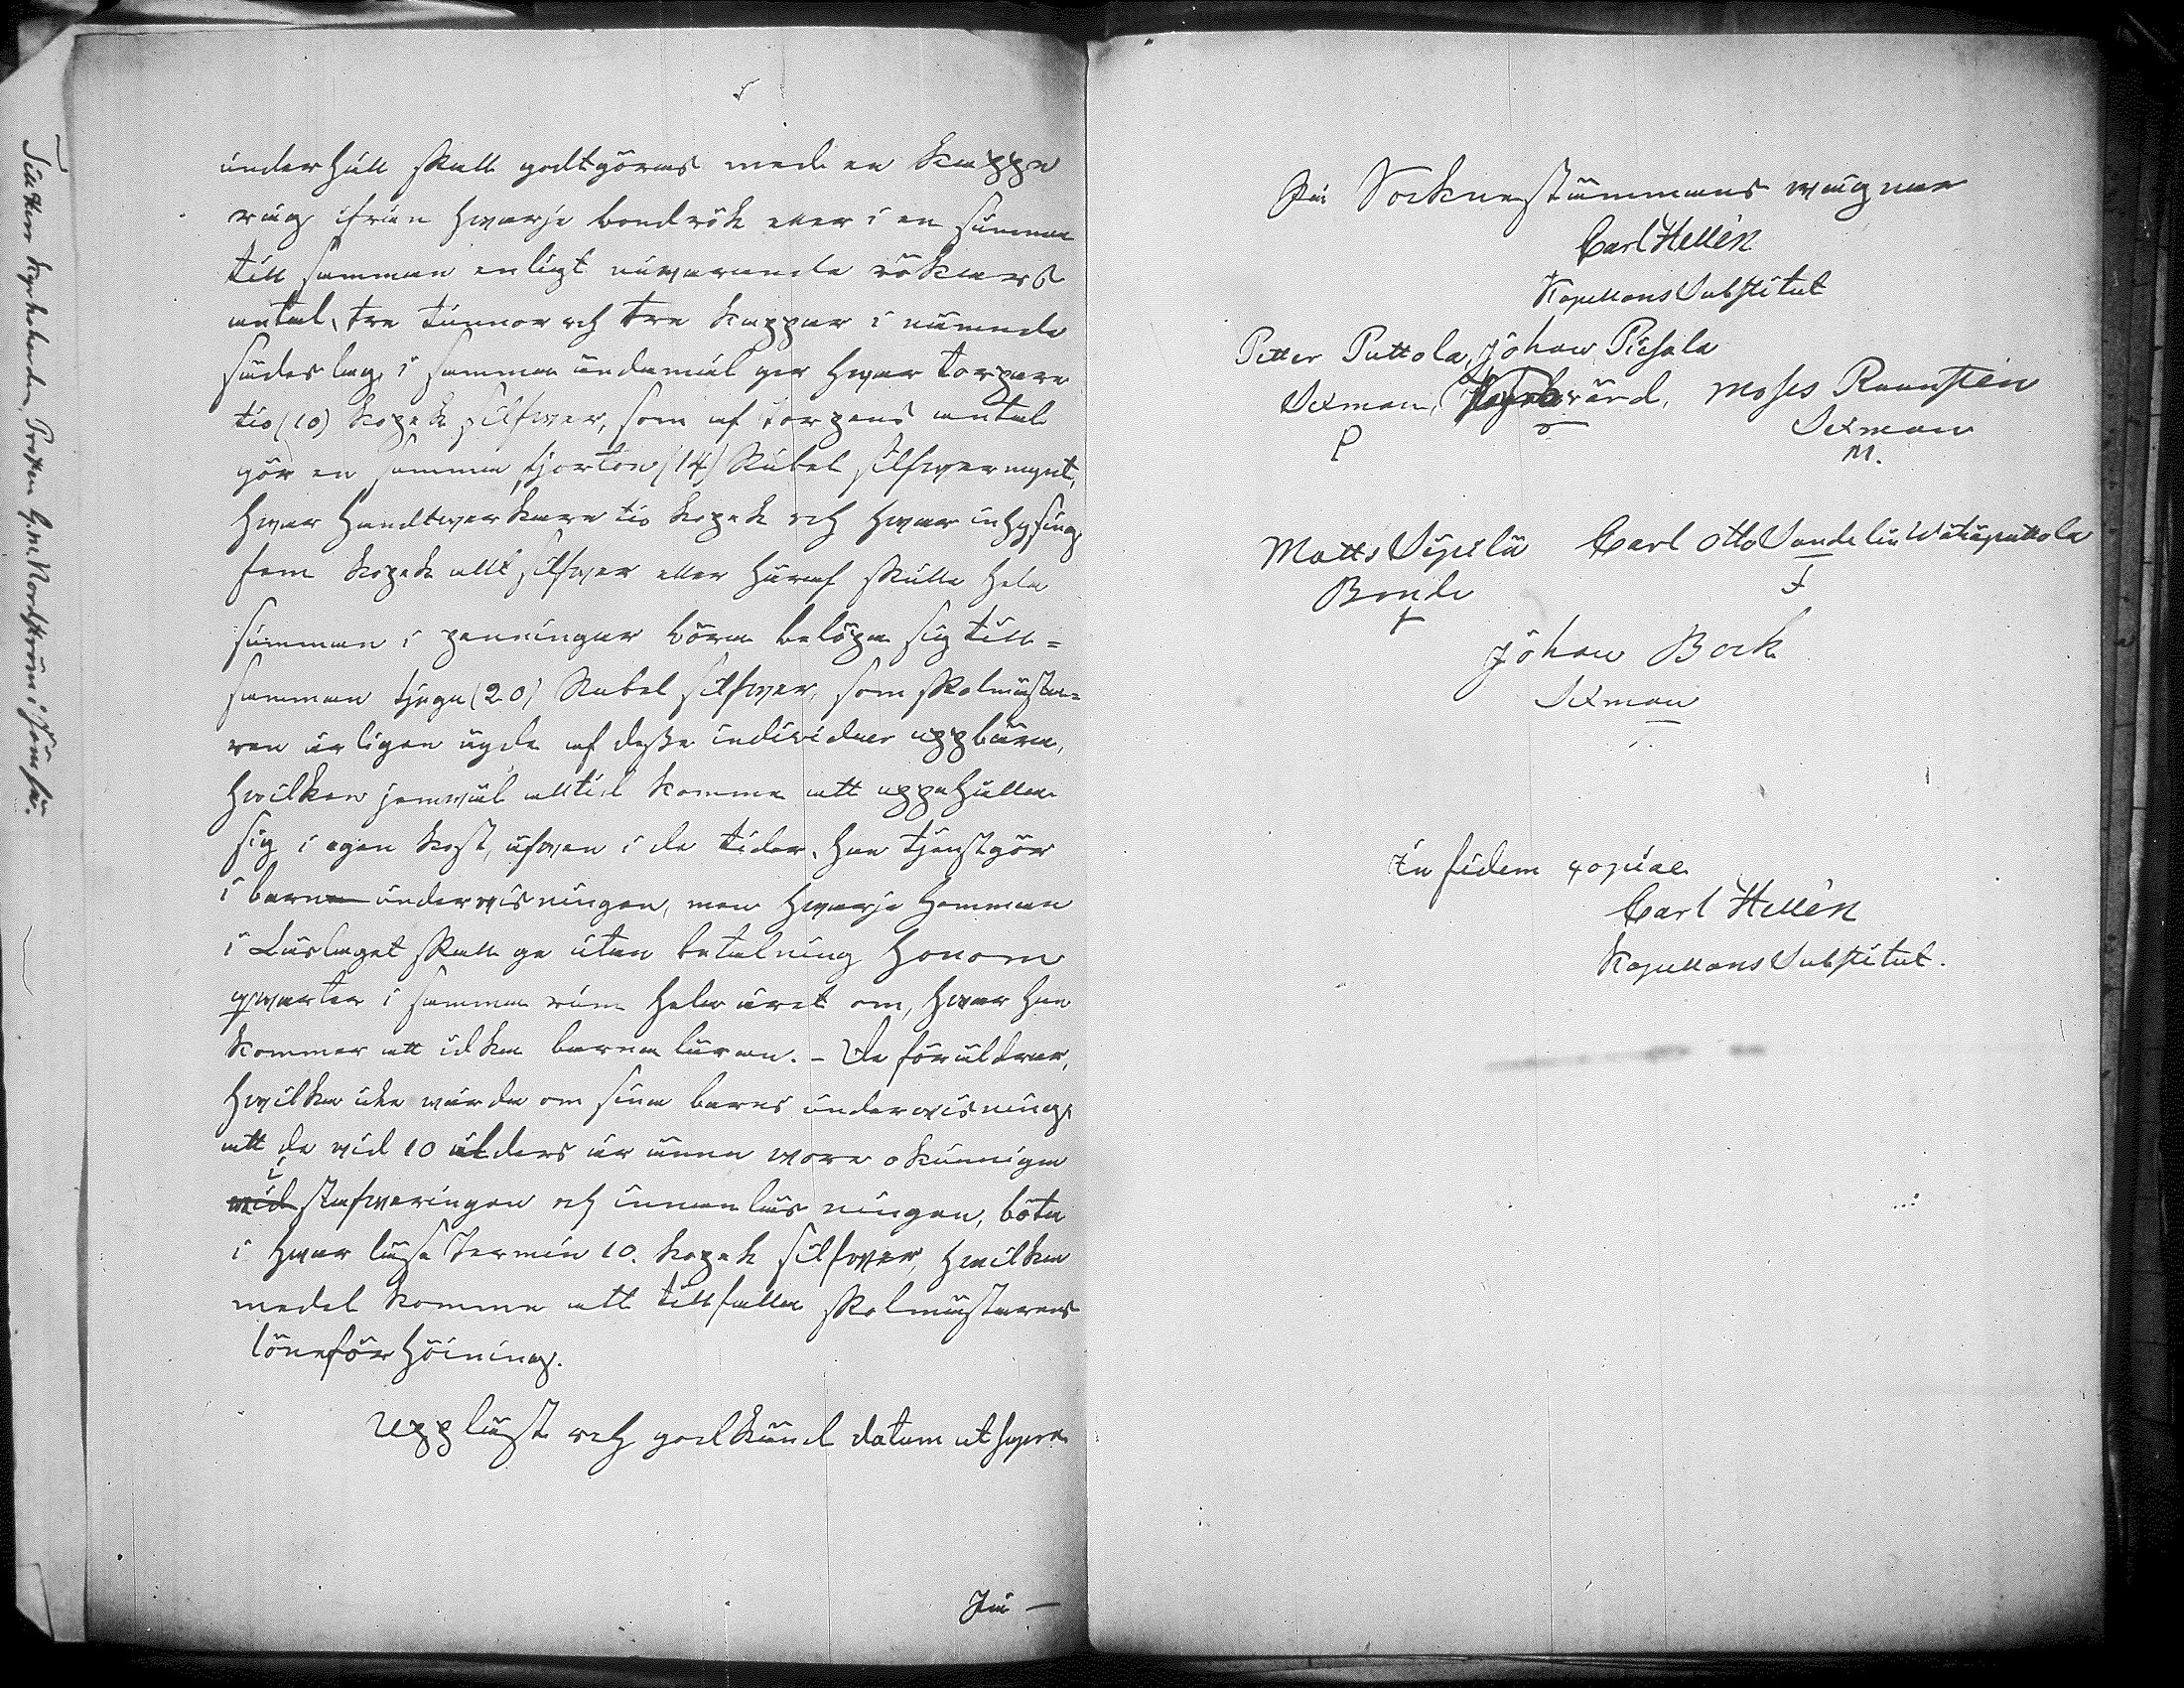 underhåll skall godtgöras med en kappe
råg ifrån hwarje bondrök eller i en summa
till samman enligt nuvarande rökars
antal, tre tunnor och tre kappar i nämnde
sädeslag, i samma ändamål ger hwar torpare
tio (10) kopek silfwer, som af torpens antal
gör en summa fjorton (14) Rubel silfwermynt,
hwar Handtwerkare tio kopek och hwar inhysing
fem kopek allt silfwer eller häraf skulle hela
summan i penningar böra belöpa sig till=
samman tjugu (20) Rubel silfwer, som skolmästa=
ren årligen ägde af desse individer uppbära,
hwilken jemwäl alltid komme att uppehålla
sig i egen kost, äfwen i de tider, han tjenstgör
i barna undervisningen, men hwarje hemman
i Läslaget skall ge utan betalning honom
qwarter i samma rum hela året om, hwar han
kommer att idka barna läran. – De föräldrar,
hwilka icke wårda om sina barns underwisning,
att de wid 10 ålders år ännu wore okunniga
i
wid stafweringen och innanläsningen, böta
i hwar läse Termin 10. kopek silfwer, hwilka
medel komme att tillfalla skolmästarens
löneförhöining.
Uppläst och godkänd datum ut supra
På –
Till Herr Kyrkoherden, Prosten G. M. Nordström i Jomsä.
På Sockenstämmans wägnar
Carl Hellén
Kapellans Substitut
Petter Puttola, Johan Piesala
Sexman, Kyrkvärd, Moses Raunstén
Sexman
P
M.
Matts Sipilä Carl Otto Sandelin Wähäputtola
Bonde
Johan Bock
Sexman
In fidem copiae
Carl Hellén
Kapellans Substitut.